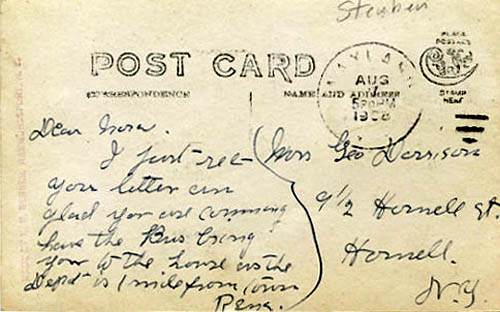 Steuben
POST CARD
CORRESPONDENCE
NAME AND ADDRESS
PLACE
POSTAGE
STAMP
HERE
WAYLAND
AUG
7
530PM
1908
Dear Nora.
I just rec
your letter am
glad you are comming
have the Bus bring
you to the house as the
Depot is 1 mile from town
Rena.
Mrs Geo Dorrison
9 1/2 Hornell St.
Hornell.
N.Y.